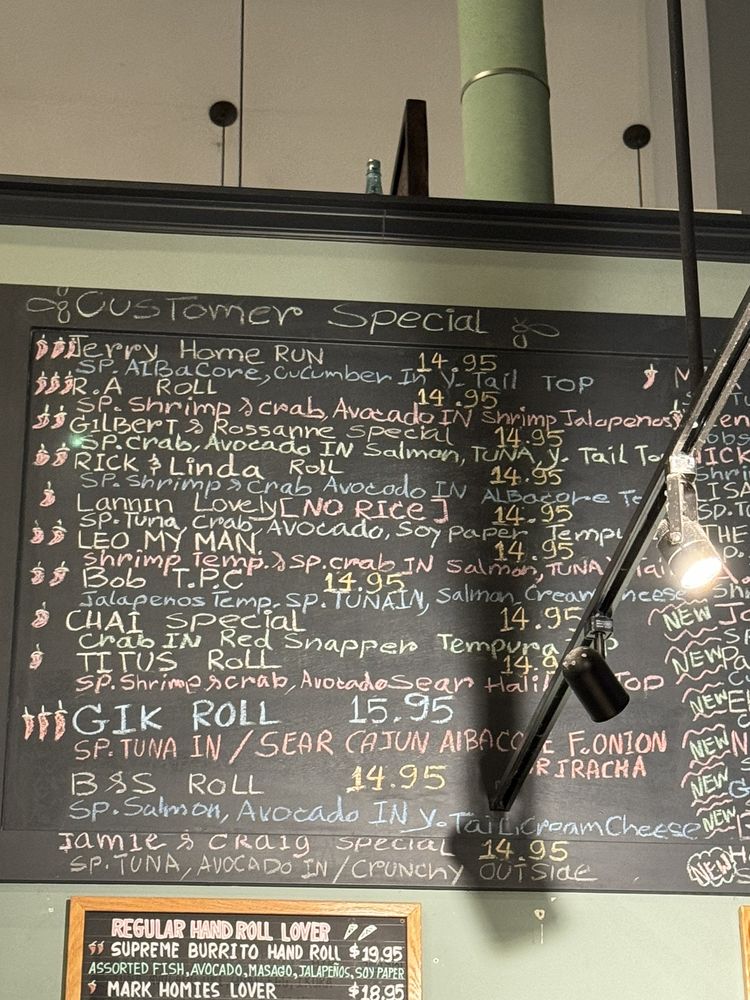 Customer Special
Jerry Home RUN 14.95
SP. AlBaCore, Cucumber In Y. Tail TOP
R.A ROLL 14.95
SP. Shrimp & crab, Avocado IN Shrimp Jalapenos
GILBERT & Rossanne special 14.95
SP. Crab, Avocado IN Salmon, TUNA, y. Tail
RICK & Linda Roll 14.95
SP. Shrimp & crab Avocado IN ALBacore
Lannin Lovely [NO RICE] 14.95
SP. Tuna, Crab, Avocado, Soy paper
LEO MY MAN 14.95
shrimp Temp. & SP. crab IN Salmon, TUNA
Bob T.P.C 14.95
Jalapenos Temp. SP. TUNA IN, Salmon Cream
CHAI special 14.95
Crab IN Red Snapper Tempura
TITUS ROLL
SP. Shrimp & crab, Avocado Sear TOP
GIK ROLL 15.95
SP. TUNA IN / SEAR CAJUN F. ONION
B&S ROLL 14.95
SP. Salmon, Avocado IN Y. Tail, Cream Cheese
Jamie & Craig special 14.95
SP. TUNA, AVOCADO IN / CRUNCHY OUTSIDE
NEW
NEW
NEW
NEW
NEW
NEW
NEW
REGULAR HAND ROLL LOVER
SUPREME BURRITO HAND ROLL $19.95
ASSORTED FISH, AVOCADO, MASAGO, JALAPEÑOS, SOY PAPER
MARK HOMIES LOVER $18.95